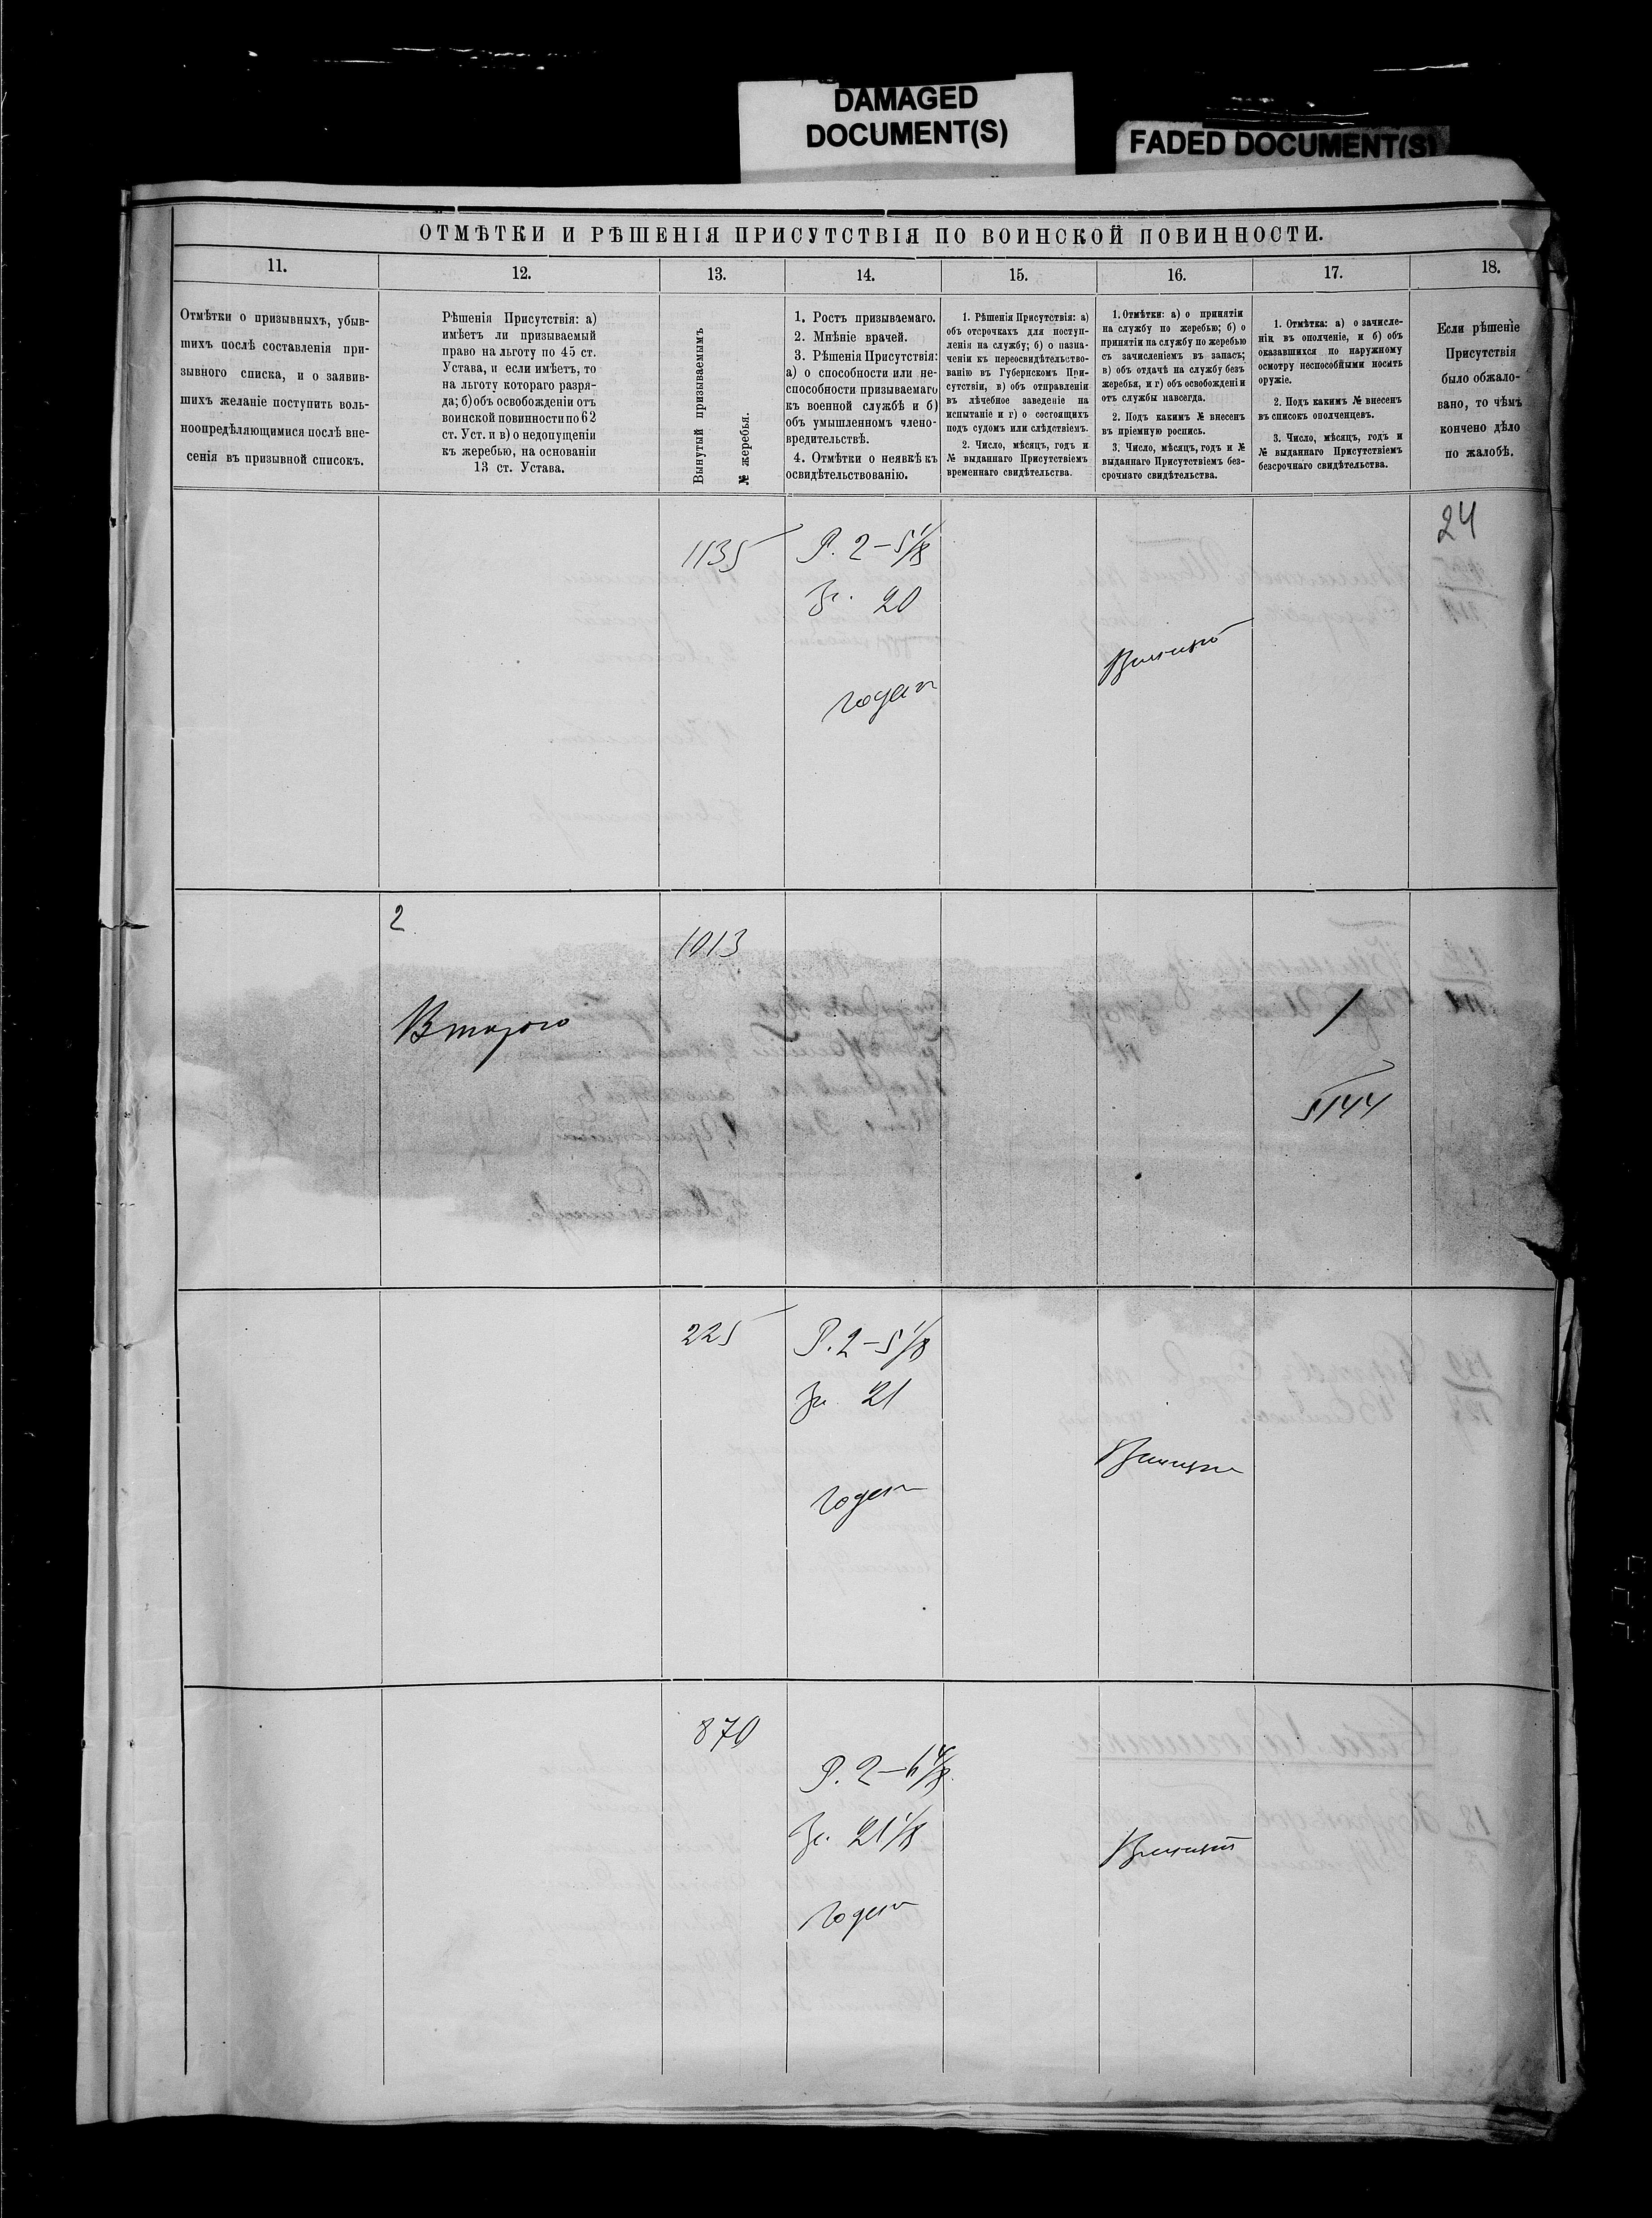 DAMAGED
DOCUMENT(S)
FADED DOCUMENT(S)
ОТМѢТКИ И РѢШЕНІЯ ПРИСУТСТВІЯ ПО ВОИНСКОЙ ПОВИННОСТИ.
11.
12.
13.
14.
15.
16.
17.
18.
Отмѣтки о призывныхъ, убыв-
шихъ послѣ составленія при-
зывного списка, и о заявив-
шихъ желаніе поступить воль-
ноопредѣляющимися послѣ вне-
сенія въ призывной списокъ.
Рѣшенія Присутствія: а)
имѣетъ ли призываемый
право на льготу по 45 ст.
Устава, и если имѣетъ, то
на льготу котораго разря-
да; б) объ освобожденіи отъ
воинской повинности по 62
ст. Уст. и в) о недопущеніи
къ жеребью, на основаніи
13 ст. Устава.
Вынутый призываемымъ
№ жеребья.
1. Ростъ призываемаго.
2. Мнѣніе врачей.
3. Рѣшенія Присутствія:
а) о способности или не-
способности призываемаго
къ военной службѣ и б)
объ умышленномъ члено-
вредительствѣ.
4. Отмѣтки о неявкѣ къ
освидѣтельствованію.
1. Рѣшенія Присутствія: а)
объ отсрочкахъ для поступ-
ленія на службу; б) о назна-
ченіи къ переосвидѣтельство-
ванію въ Губернскомъ При-
сутствіи, в) объ отправленіи
въ лѣчебное заведеніе на
испытаніе и г) о состоящихъ
подъ судомъ или слѣдствіемъ.
2. Число, мѣсяцъ, годъ и
№ выданнаго Присутствіемъ
временнаго свидѣтельства.
1. Отмѣтки: а) о принятіи
на службу по жеребью; б) о
принятіи на службу по жеребью
съ зачисленіемъ въ запасъ;
в) объ отдачѣ на службу безъ
жеребья, и г) объ освобожденіи
отъ службы навсегда.
2. Подъ какимъ № внесенъ
въ пріемную роспись.
3. Число, мѣсяцъ, годъ и №
выданнаго Присутствіемъ без-
срочнаго свидѣтельства.
1. Отмѣтка: а) о зачисле-
ніи въ ополченіе, и б) объ
оказавшихся по наружному
осмотру неспособными носить
оружіе.
2. Подъ какимъ № внесенъ
въ списокъ ополченцевъ.
3. Число, мѣсяцъ, годъ и
№ выданнаго Присутствіемъ
безсрочнаго свидѣтельства.
Если рѣшеніе
Присутствія
было обжало-
вано, то чѣмъ
кончено дѣло
по жалобѣ.
24
1135
Р. 2-5 1/8
20
годен
2
1013
Второго
1
5144
225
Р. 2-5 1/8
21
годен
870
Р. 2-6 4/8
21 1/8
годен